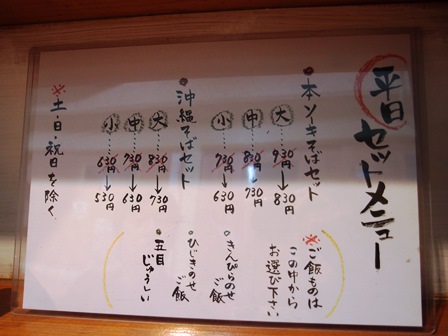 平日セットメニュー
●本ソーキそばセット
大……930円→830円
中……830円→730円
小……730円→630円
●沖縄そばセット
大……830円→730円
中……730円→630円
小……630円→530円
※土・日・祝日を除く
※ご飯ものは
この中から
お選び下さい
○きんぴらのせ
ご飯
○ひじきのせ
ご飯
○五目
じゅうしい